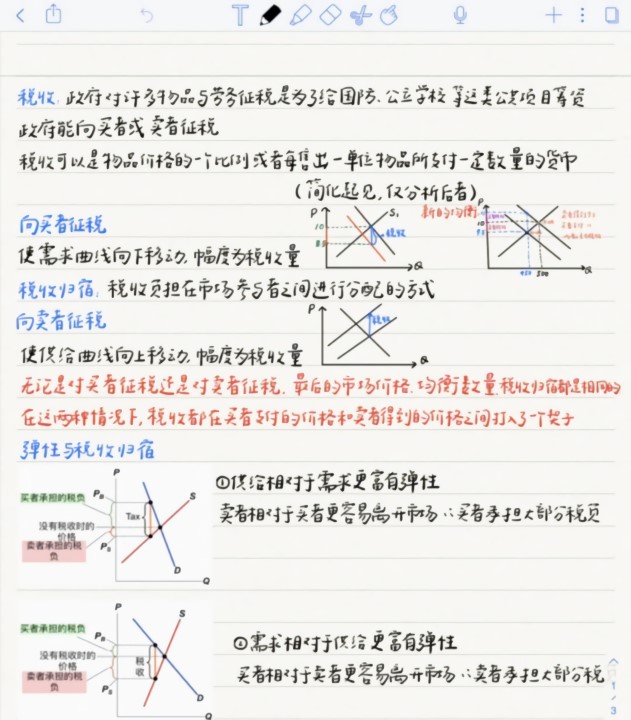 税收: 政府对许多物品与劳务征税是为了给国防、公立学校等这类公共项目筹资
政府能向买者或卖者征税
税收可以是物品价格的一个比例或者每售出一单位物品所支付一定数量的货币
(简化起见,仅分析后者)
向买者征税
使需求曲线向下移动,幅度为税收量
P
10
8.5
S₁
税收
Q
新的均衡
P
10
450
500
Q
税收归宿: 税收负担在市场参与者之间进行分配的方式
向卖者征税
使供给曲线向上移动,幅度为税收量
P
税收
Q
无论是对买者征税还是对卖者征税,最后的市场价格、均衡数量,税收归宿都是相同的
在这两种情况下,税收都在买者支付的价格和卖者得到的价格之间打入了个楔子
弹性与税收归宿
①供给相对于需求更富有弹性
卖者相对于买者更容易离开市场 ∴买者承担大部分税负
P
买者承担的税负
P_B
S
Tax
没有税收时的
价格
卖者承担的税
负
P_S
D
Q
②需求相对于供给更富有弹性
买者相对于卖者更容易离开市场 ∴卖者承担大部分税
P
S
买者承担的税负
P_B
没有税收时的
价格
税
收
卖者承担的税
负
P_S
D
Q
1
/
3